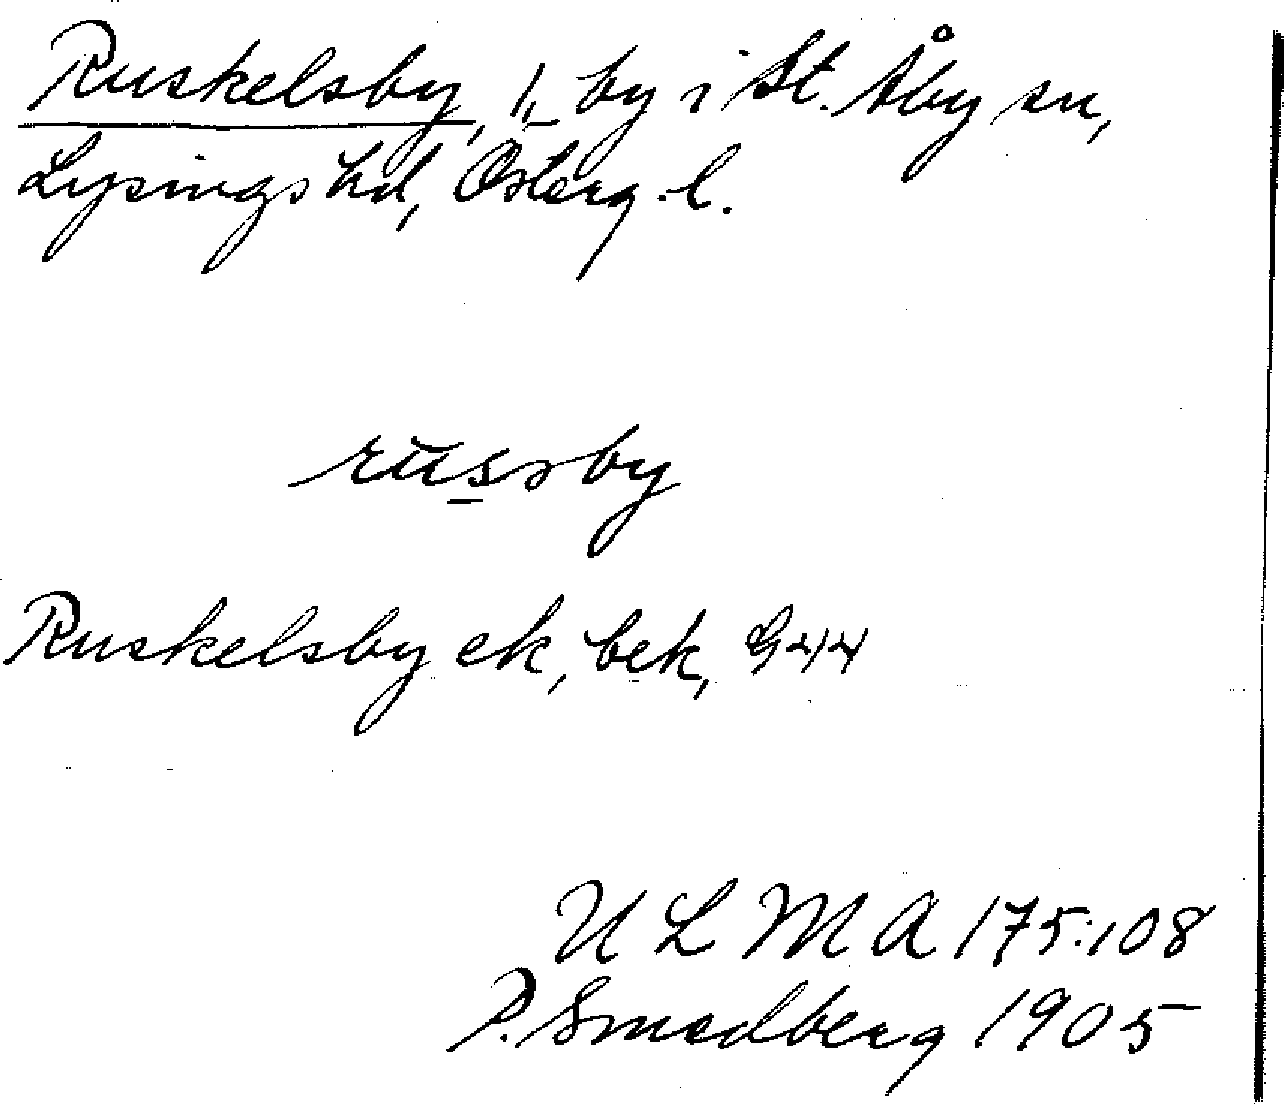 Ruskelsby, 1, by i St. Åby sn,
Lysings hd, Österg. l.
russby
Ruskelsby ek, bek, G44
ULMA 175:108
P. Smedberg 1905